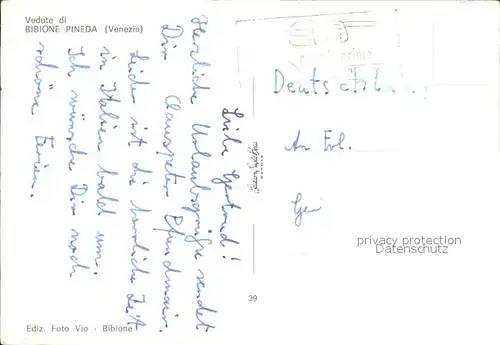 Vedute di
BIBIONE PINEDA (Venezia)
Liebe Gertrud!
Herzliche Urlaubsgrüße sendet
Dir Clauspeter
Leider ist die herrliche Zeit
in Italien bald um.
Ich wünsche Dir noch
schöne Ferien.
Deutschl
An Frl.
Ger
privacy protection
Datenschutz
39
Ediz. Foto Vio - Bibione